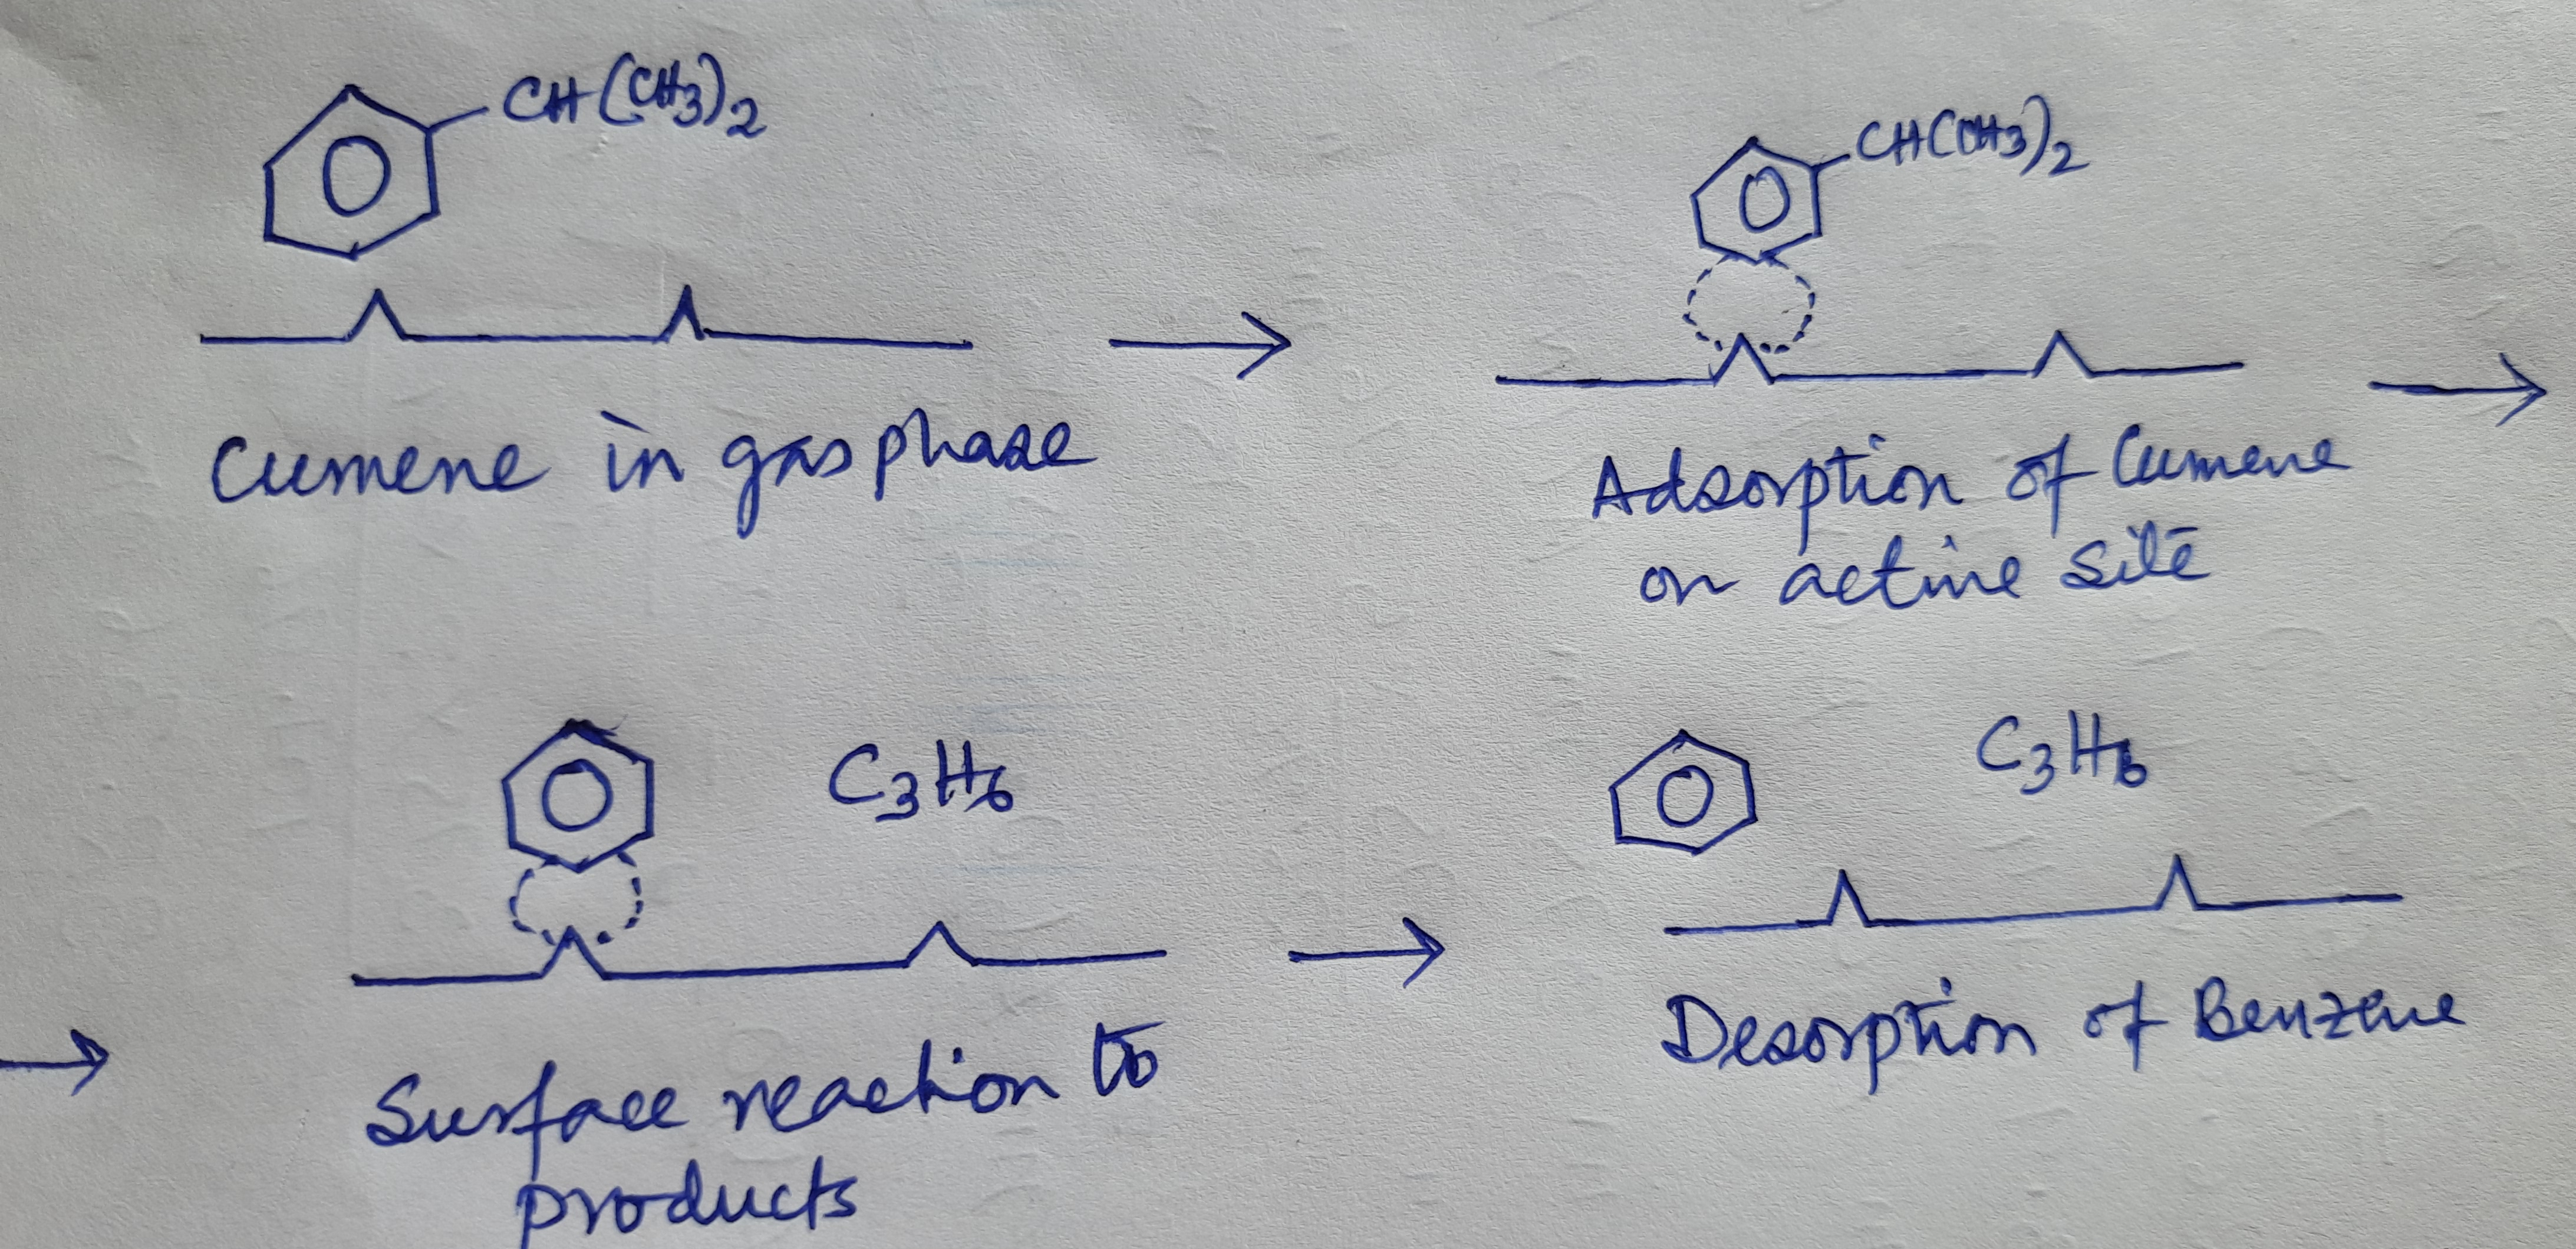 CH(CH3)2
CH(CH3)2
Cumene in gas phase
Adsorption of Cumene
on active site
C3H6
C3H6
Surface reaction to
products
Desorption of Benzene